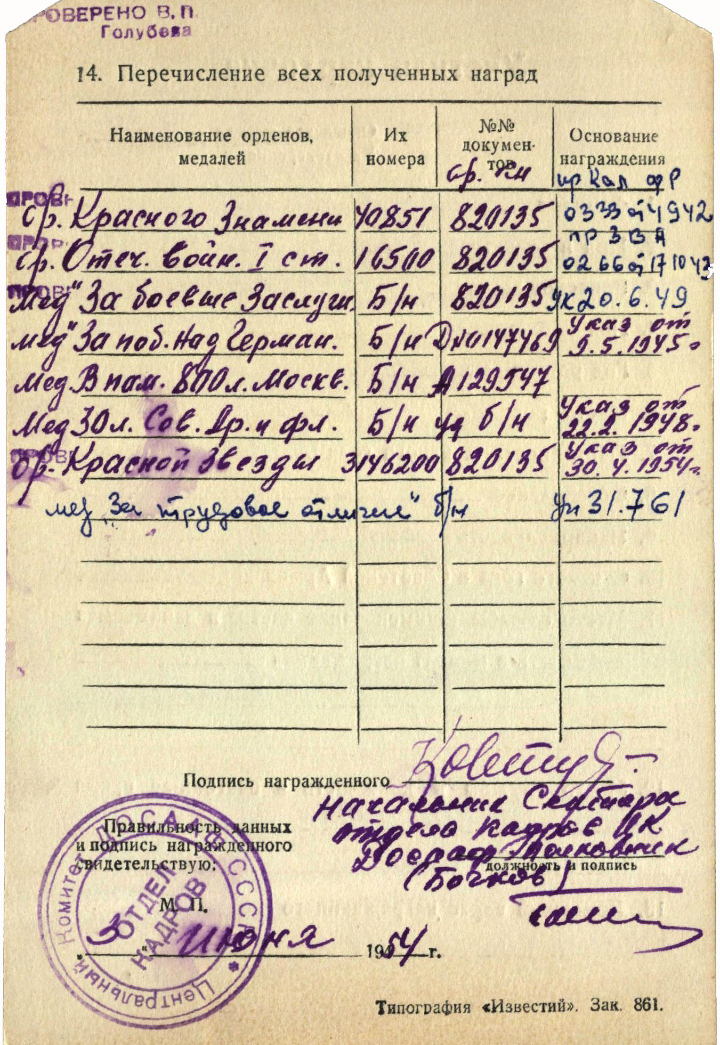 ПРОВЕРЕНО В.П.
Голубева
14. Перечисление всех полученных наград
Наименование орденов, медалей
Их номера
№№ документов
Основание награждения
ор. кн
пр Кал фр
Ор. Красного Знамени 40851 820135 0333 от 4 9 42
пр ЗВА
Ор. Отеч. войн. I ст. 16500 820135 0266 от 17 10 43
мед "За боевые Заслуги. Б/н 820135 Ук 20.6.49
мед "За поб. Над Герман. Б/н Д№0147469 Указ от 9.5.1945г
Мед. В пам. 800 л. Москв. Б/н А129547
Мед 30 л. Сов. Ар. и фл. Б/н уд б/н Указ от 22.2.1948г
Ор. Красной Звезды 3146200 820135 Указ от 30.4.1954г
мед „За трудовое отличие" б/н Ук 31.7 61
Подпись награжденного
Правильность данных
и подпись награжденного
свидетельствую:
Начальник Сектора
отдела кадров ЦК
Досааф Полковник
должность и подпись
(Бочков)
М. П.
„3" Июня 1954 г.
Центральный Комитет ДОСААФ СССР
ОТДЕЛ КАДРОВ
Типография «Известий». Зак. 861.